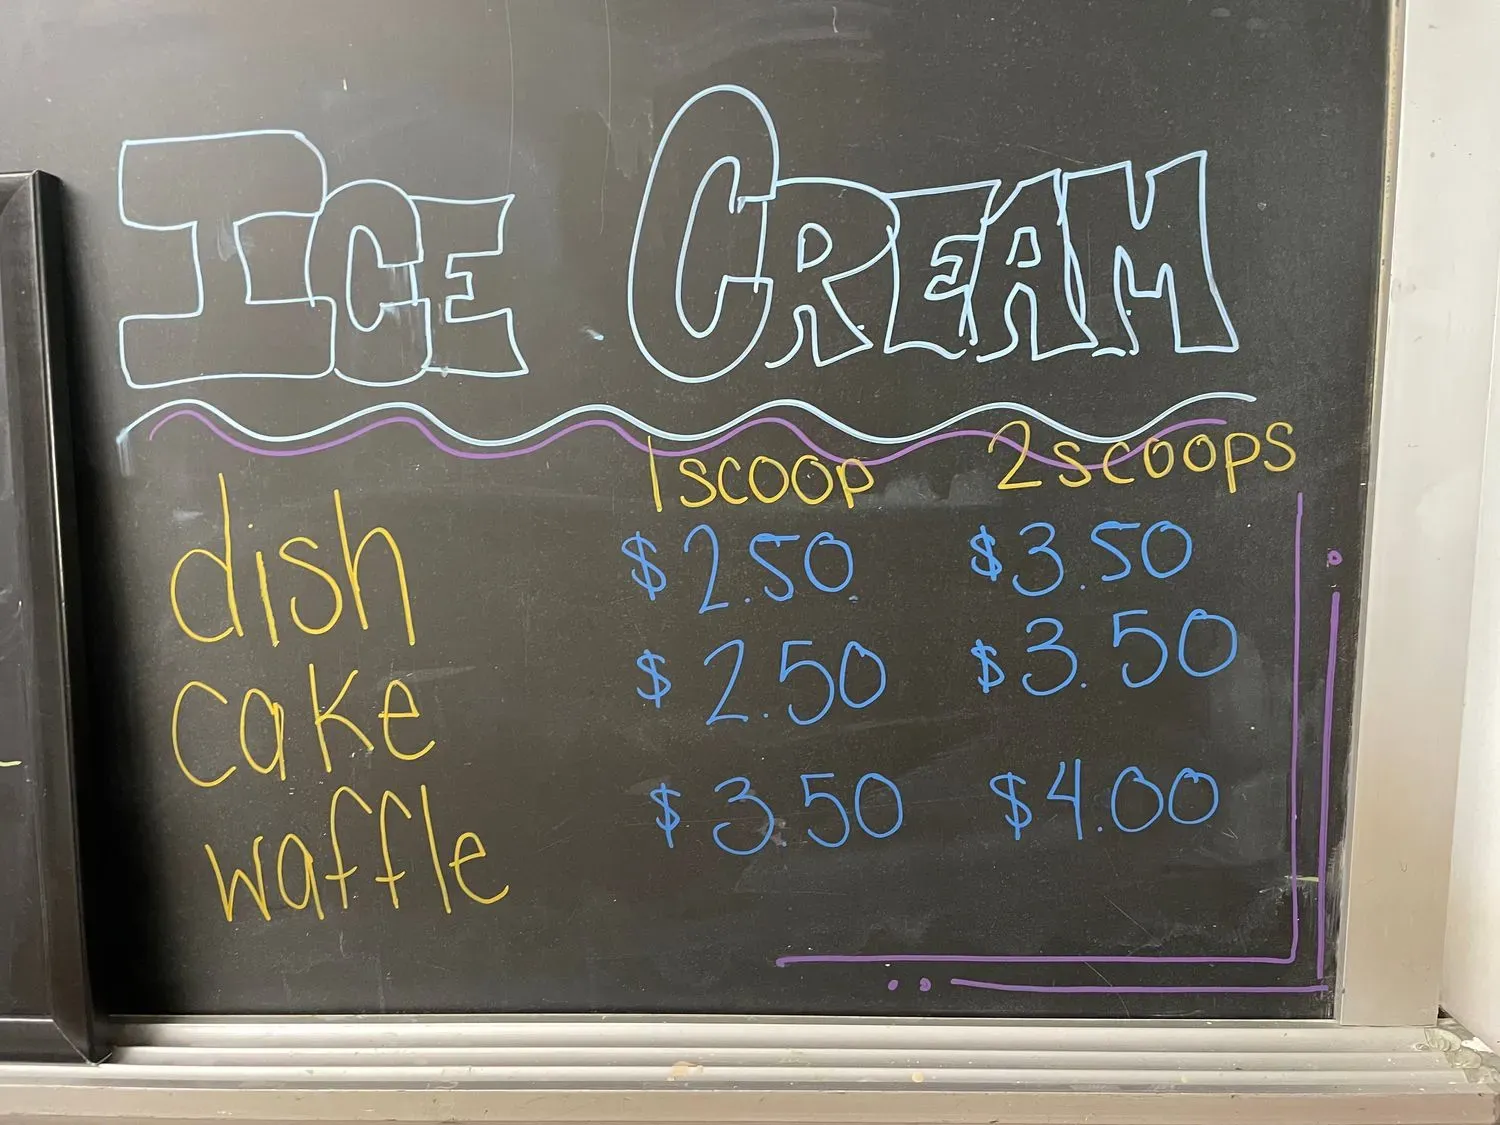 ICE CREAM
1 scoop 2 scoops
dish $2.50 $3.50
cake $2.50 $3.50
waffle $3.50 $4.00